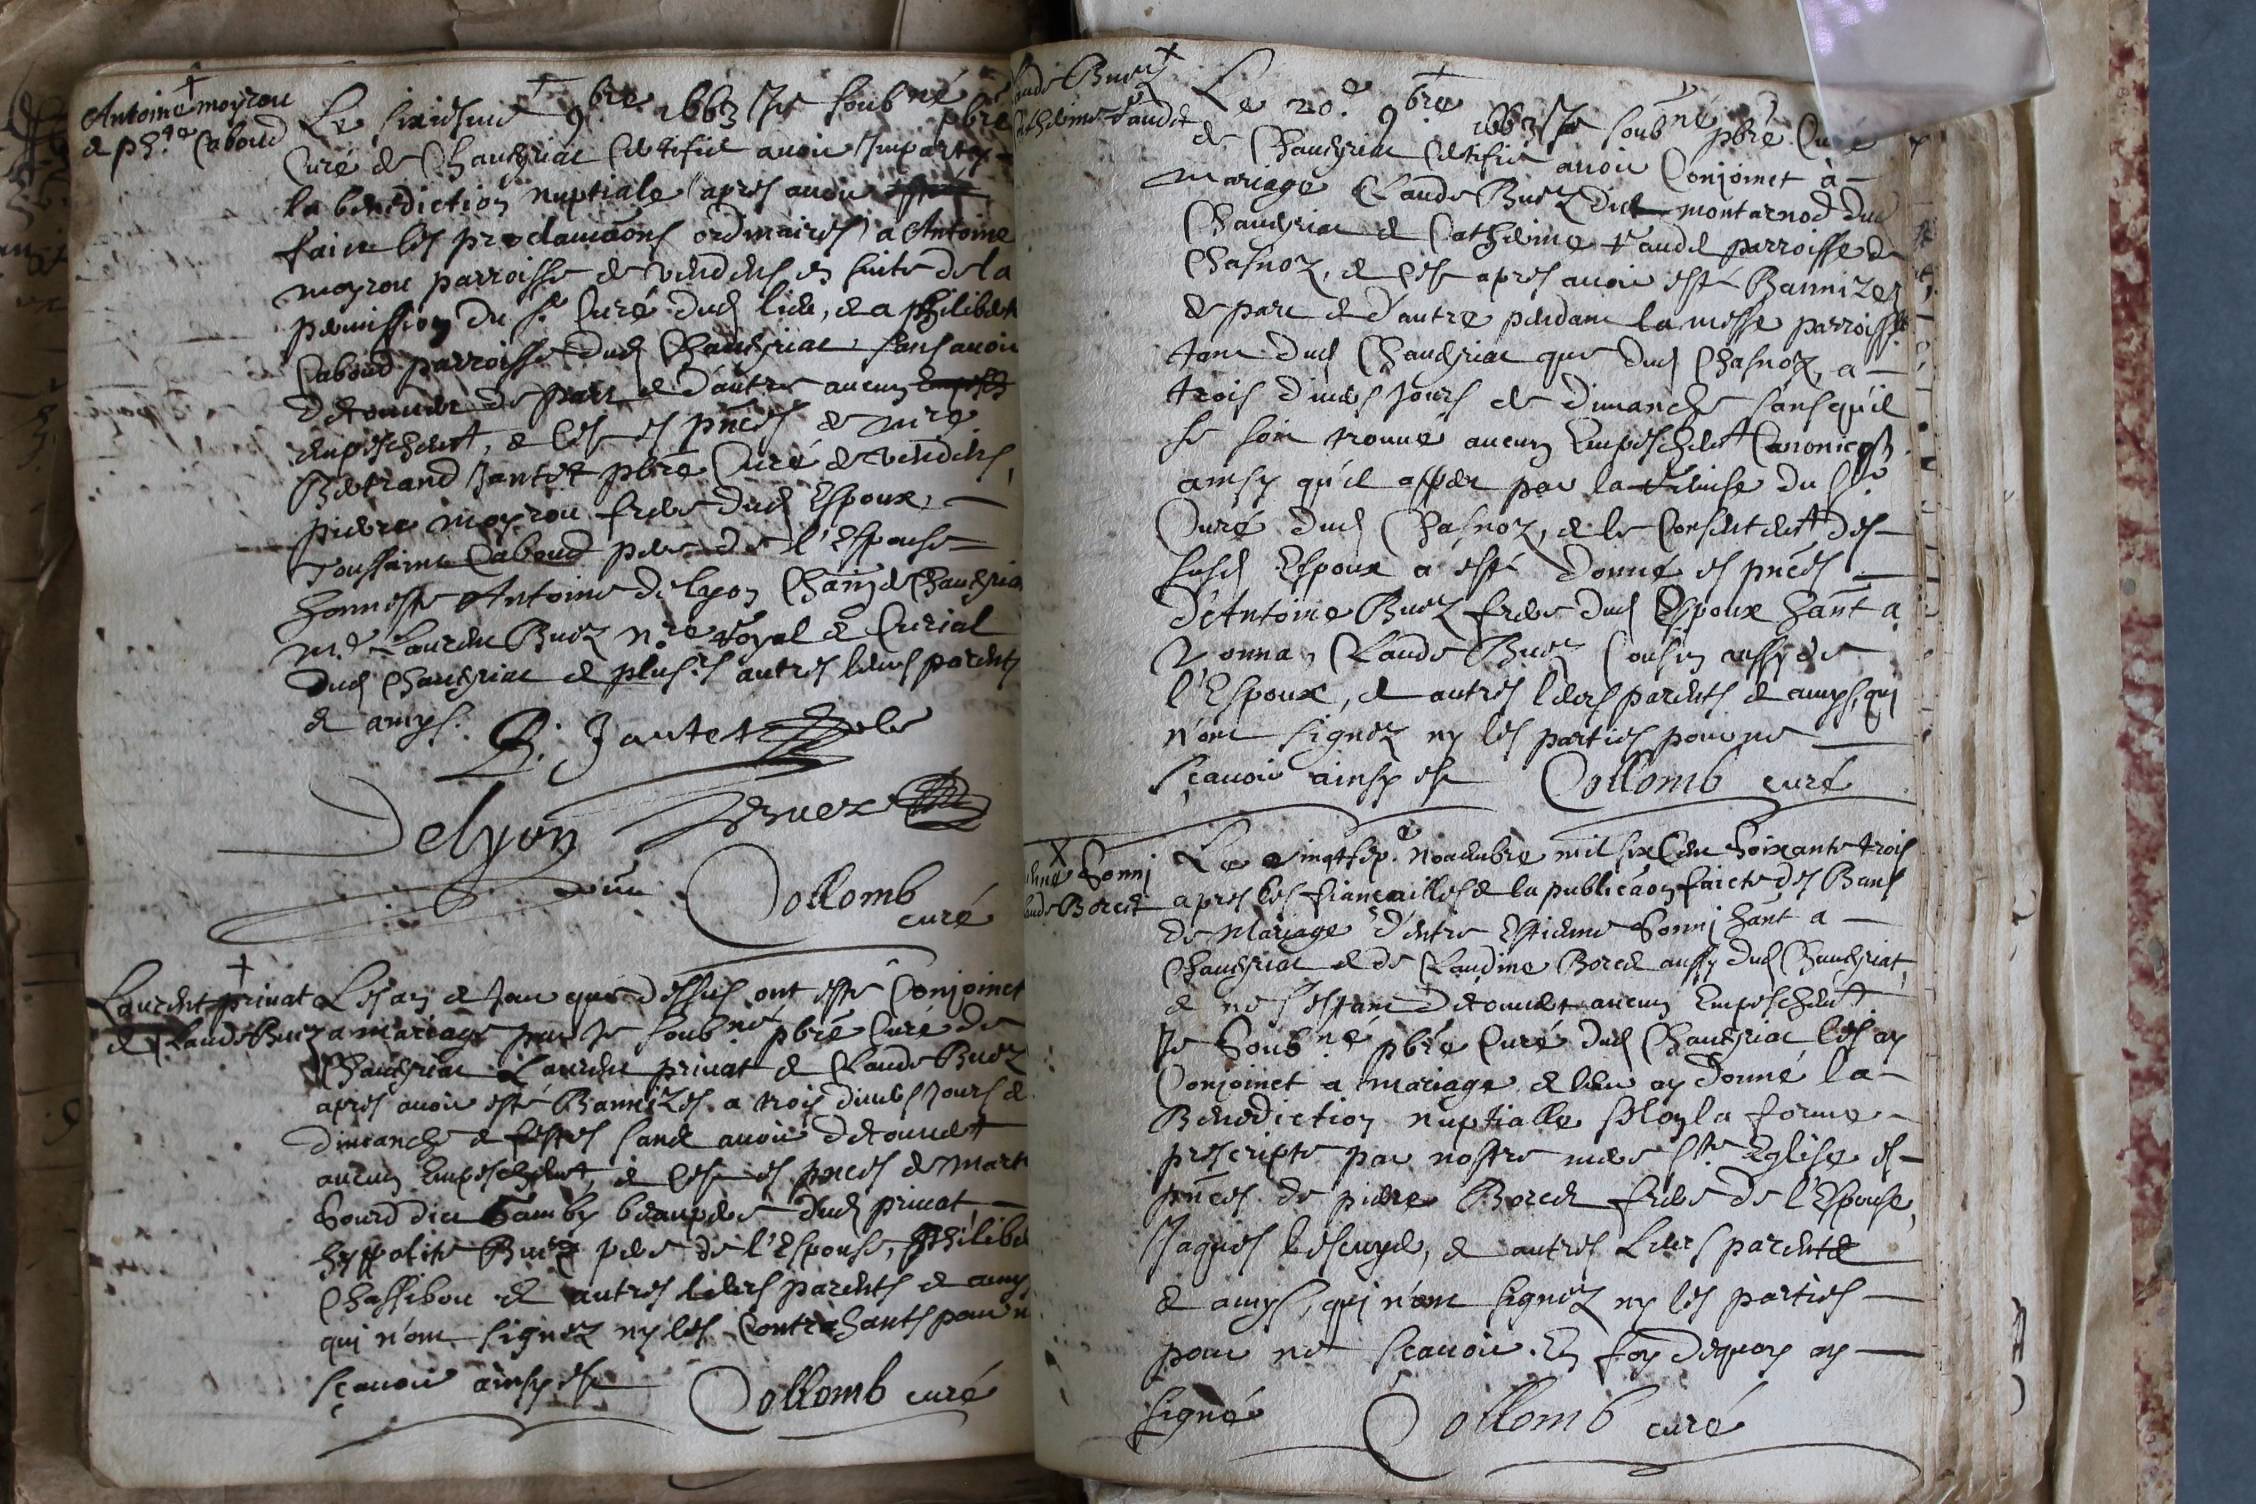 Antoine moyrou
& ph.te Caboud
Le sixiesme 9bre 1663 Je soubné pbrē
Curé de Chaveyriac Certifie avoir Imparty
la benediction nuptiale apres avoir
faict les proclamaōns ordinaires a Antoine
moyrou parroisse de vendens en suite de la
permission du sr Curé dud lieu, & a philiberte
Caboud parroisse dud Chaveyriac, sans avoir
descouvert de part & d'autre aucun
empeschemt, & ce es pnces de mre
Bertrand Jantet pbrē Curé de vendens,
pierre moyrou frere dud Espoux,
Toussainct Caboud pere de l'Espouse
honneste Antoine Delyon Chaveyria
me Laurent Buez nre Royal & Curial
dud Chaveyriac & plusrs autres leurs parents
& amys. B. Jantet
Delyon Buez
Collomb
curé
Laurent privat
& Claude Buez
Les an & Jour que dessus ont esté Conjoinct
a mariage par Je soubné pbrē Curé de
Chaveyriac Laurent privat & Claude Buez
apres avoir esté Bannizes a trois divers Jours de
dimanche & festes sans avoir descouvert
aucun Empeschemt, & ce es pnces de Mart
Sourd dict Gamby beaupere dud privat,
hyppolite Buez pere de l'Espouse, philibe
Chassibou & autres leurs parents & amys
qui n'ont signez ny les Contrahants pour n
sçavoir ainsy est Collomb curé
aude Buez
Catherine Vaudet
Le 20e 9bre 1663 Je soubné pbrē Curé
de Chaveyriac Certifie avoir Conjoinct a
mariage Claude Buez dict montarnod dud
Chaveyriac & Catherine Vaudet parroisse de
Chasnoz, & ce apres avoir esté Bannizez
de part & d'autre pendant la messe parroiss
tant dud Chaveyriac que dud Chasnoz, a
trois divers Jours de dimanche sans qu'il
se soit trouvé aucun Empeschemt Canonicq
ainsy qu'il appert par la remise du sr
Curé dud Chasnoz, & le Consentemt des
susd Espoux a esté donné es pnces
d'Antoine Buez frere dud Espoux hant a
Vonna, Claude Buez Cousin aussy de
l'Espoux, & autres leurs parents & amys, qui
n'ont signez ny les parties pour ne
sçavoir ainsy est Collomb curé
enne Sonnj
aude Borcet
Le vingtsepe Novembre mil six Cent Soixante trois
apres les fiançailles & la publicaōn faicte des Bans
de Mariage d'entre Estienne Sonnj hant a
Chaveyriac & de Claudine Borcet aussy dud Chaveyriat,
& ne s'estant descouvert aucun Empeschemt
Je Soubné pbrē Curé dud Chaveyriac les ay
Conjoinct a mariage & leur ay donné la
Benediction nuptialle selon la forme
prescripte par nostre mere Ste Eglise es
pnces de pierre Borcet frere de l'Espouse,
Jaques Lescuyer, & autres Leurs parents
& amys, qui n'ont signez ny les parties
pour ne sçavoir. En foy dequoy ay
signé Collomb curé